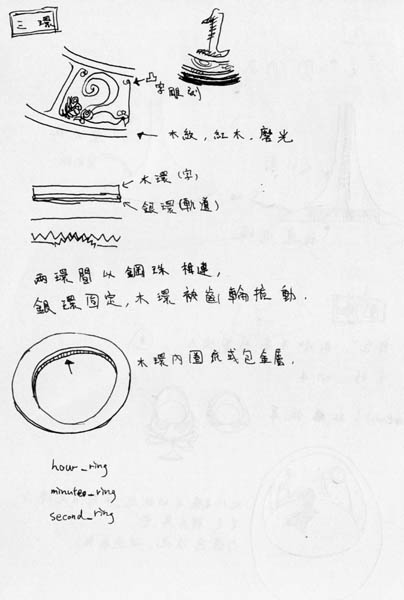 三環
1
凸字雕刻
木紋, 紅木. 磨光
木環(字)
銀環(軌道)
兩環間以鋼珠相連,
銀環固定, 木環被齒輪推動.
木環內圈 或包金屬.
hour_ring
minutes_ring
second_ring